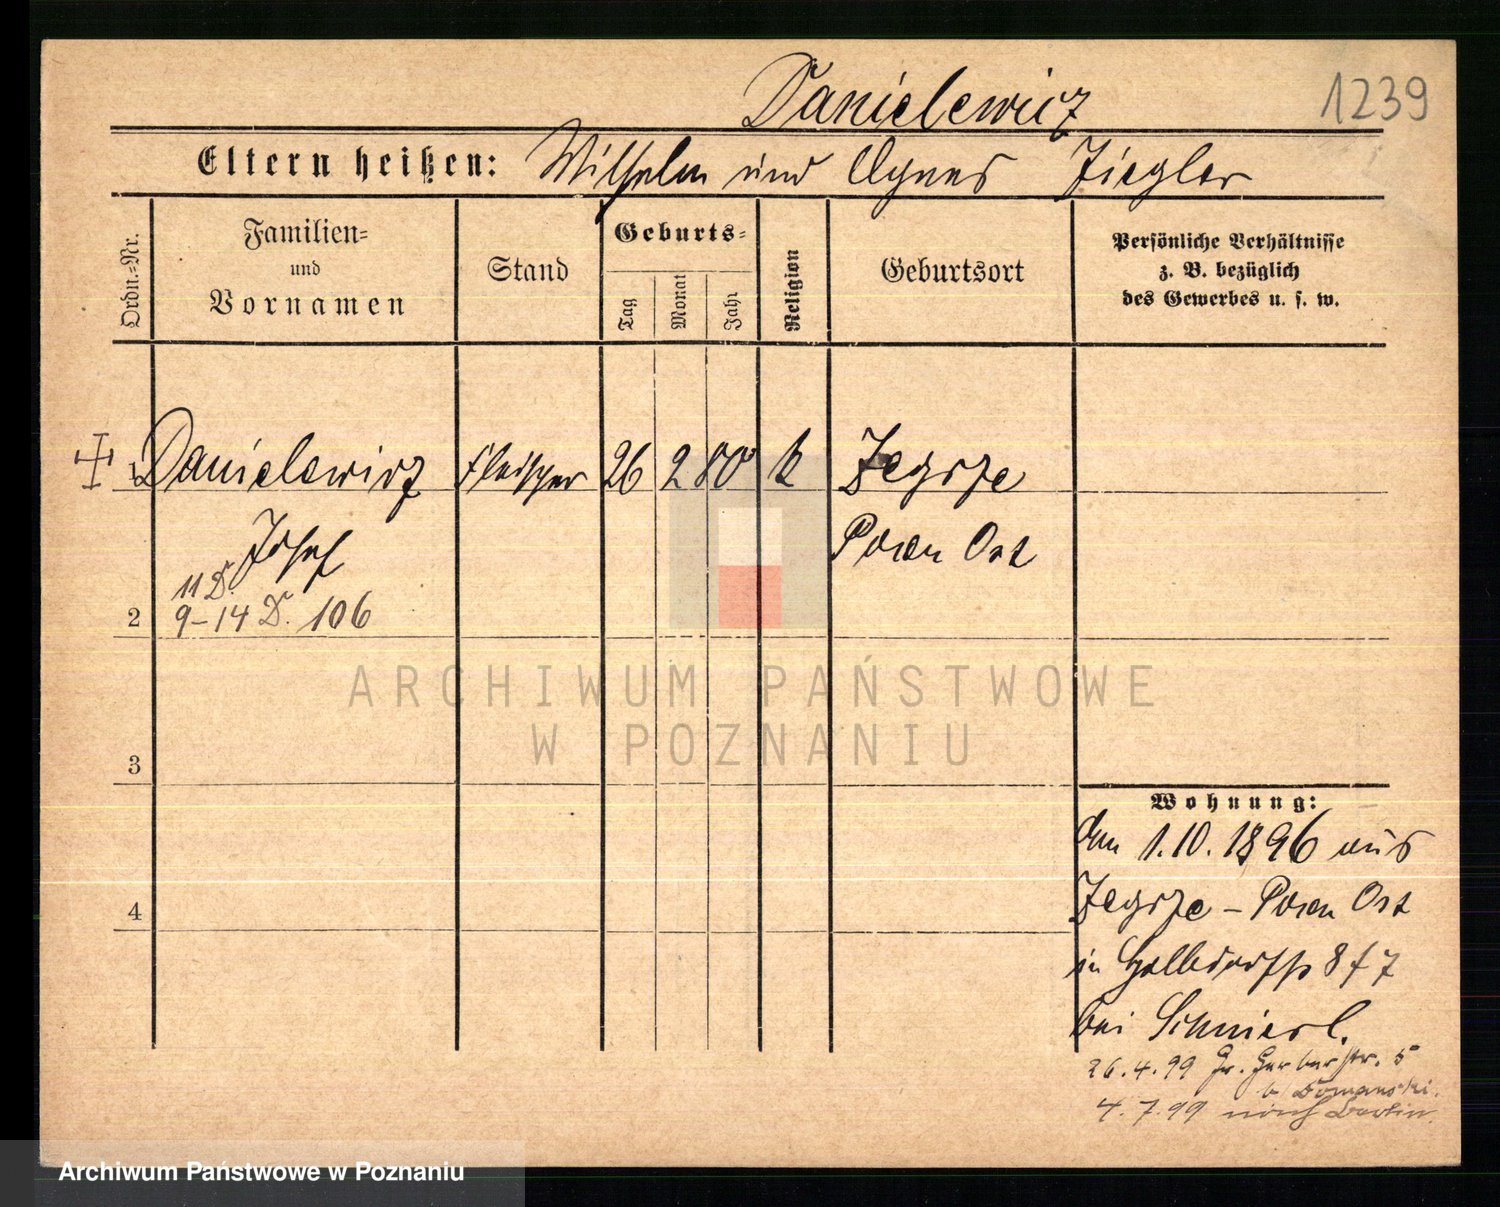 1239
Danielewicz
Eltern heißen: Wilhelm und Agnes Ziegler
Ordn.-Nr.
Familien-
und
Vornamen
Stand
Geburts-
Tag
Monat
Jahr
Religion
Geburtsort
Persönliche Verhältnisse
z. B. bezüglich
des Gewerbes u. s. w.
1 Danielewicz Fleischer 26 2 80 k Zegrze
Josef Posen Ost
11 D.
2 9-14 D. 106
ARCHIWUM PAŃSTWOWE
W POZNANIU
3
Wohnung:
den 1.10.1896 aus
Zegrze - Posen Ost
4
in Halbdorfstr 8
bei
26.4.99 Gr. Gerberstr. 5
b Domanski.
4.7.99 nach Berlin.
Archiwum Państwowe w Poznaniu